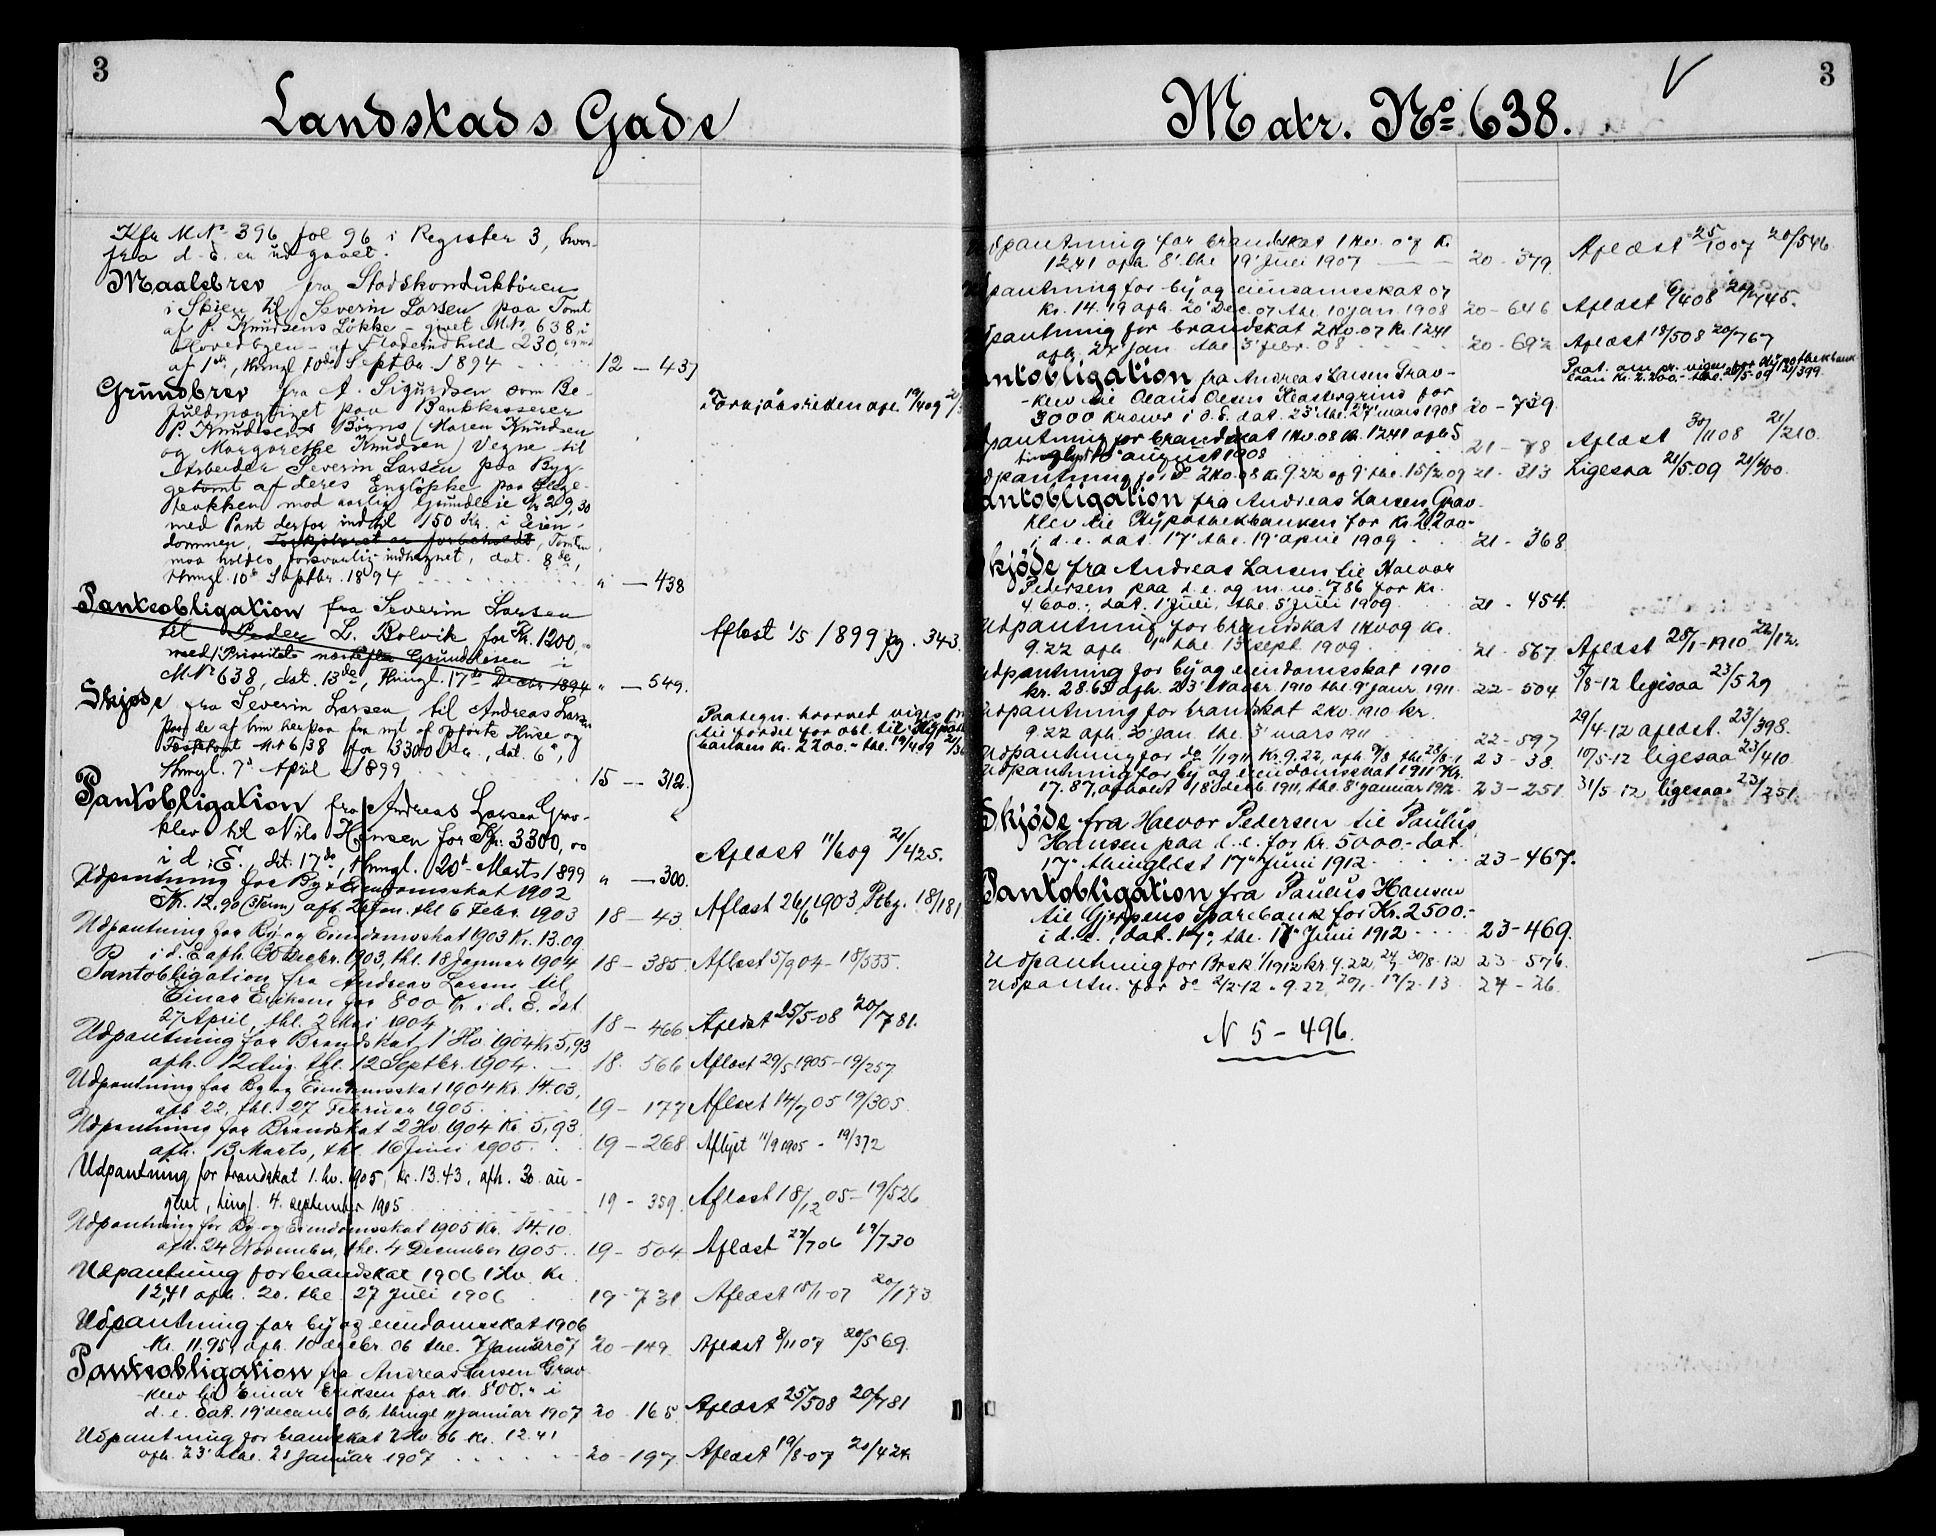 3
Landstads Gade
Kfr M.No 396 fol 96 i Register 3, hvor-
fra d. E. er udgaaet.
Maalebrev fra Stadskonduktøren
i Skien til Severin Larsen paa Tomt
af P. Knudsens Løkke – givet M.No. 638 i
Hovedbyen – af Fladeindhold 230,
af 1ste, thingl 10de Septbr. 1894 12 — 437
Grundbrev fra A. Sigurdsen som Be-
fuldmægtiget paa Bankkasserer
P. Knudsens Børns (Maren Knudsen
og Margarethe Knudsen) Vegne til
Arbeider Severin Larsen paa Byg-
getomt af deres Engløkke paa
bakken mod aarlig Grundleie Kr 29,30
med Pant derfor indtil 150 Kr. i Eien-
dommen, Forkjøbsret er forbeholdt, Tomten
maa holdes forsvarlig indhegnet, dat. 8de,
thingl. 10de Septbr. 1894 " — 438
Forkjøbsretten afl. 19/4 09 21/3
Panteobligation fra Severin Larsen
til Peder L. Bolvik for Kr. 1200,
med 1 Prioritet næstefter Grundleien i
M No 638, dat. 13de, thingl. 17de Decbr 1894 " — 549.
Aflæst 1/5 1899 pg. 343.
Skjøde fra Severin Larsen til Andreas Larsen
paa de af ham herpaa fra nyt af opførte Huse og
Fæstetomt M.No 638 for 3300 Kr., dat. 6te,
thingl. 7de April 1899 15 — 312.
Paategn. hvorved viges pr
til fordel for obl. til Hypoth
banken Kr. 2200.- thl. 19/4 09 21/36
Pantobligation fra Andreas Larsen Grav-
klev til Nils Hansen for Kr. 3300,00
i d. E., dt. 17de, thingl. 20de Marts 1899 " — 300.
Aflæst 11/6 09 21/425.
Udpantning for By & Eiendomsskat 1902
Kr. 12.90 (3 Term) afh. 26 Jan. thl 6 Febr. 1903 18 — 43.
Aflæst 26/6 1903 Ptbg. 18/181
Udpantning for By og Eiendomsskat 1903 Kr. 13.09.
i d. E afh. Decbr. 1903, thl. 18 Januar 1904 18 — 385.
Aflæst 5/9 04 – 18/555
Pantobligation fra Andreas Larsen til
Einar Eriksen for 800 Kr i d. E. dat
27 April, thl. 2 Mai 1904 18 — 466.
Aflæst 25/5-08 20/781.
Udpantning for Brandskat 1' Hv. 1904 Kr. 5,93
afh. 12 Aug. thl. 12 Septbr. 1904. 18. 566
Aflæst 29/5 1905 – 19/257
Udpantning for By og Eiendomsskat 1904 Kr. 14.03,
afh 22, thl. 27 Februar 1905. 19 – 177
Aflæst 14/7 05 19/305.
Udpantning for Brandskat 2 Hv 1904 Kr. 5,93
afh. 13 Marts, thl 16 Juni 1905. 19 – 268
Aflyst 11/9 1905 - 19/372
Udpantning for brandskat 1. hv. 1905, kr. 13.43, afh. 30. au-
gust, tingl. 4. september 1905 19 – 359.
Aflæst 18/12 05 – 19/526
Udpantning for By og Eiendomsskat 1905 Kr. 14.10
afh. 24 November, thl. 4 December 1905. 19 – 504
Aflæst 27/7 06 19/730
Udpantning for brandskat 1906 1 Hv. Kr.
12,41 afh. 20. thl. 27 Juli 1906 19 – 731
Aflæst 18/1-07 20/173
Udpantning for by og eiendomsskat 1906
Kr. 11.95, afh. 10 decbr. 06 thl. 7 Januar 07 20 – 149.
Aflæst 8/11 07 20/569.
Panteobligation fra Andreas Larsen Grav-
klev til Einar Eriksen for Kr. 800.- i
d. e. Dat. 19' decemb 06, thingl. 11 Januar 1907 20. 165.
Aflæst 25/5 08 20/781
Udpantning for brandskat 2 Hv. 06 Kr. 12.41
afh. 23' thl. 28 Januar 1907 20 – 197.
Aflæst 19/8-07 20/424
Matr. No 638.
3
dpantning for brandskat 1 Hv. 07 Kr.
12.41 afh 8' thl 19' Juli 1907 20 – 379.
Aflæst 25/10 07 20/546.
pantning for by og eiendomsskat 07
Kr. 14.19 afh. 20' Dec. 07 thl. 10 jan. 1908 20 – 646
Aflæst 6/4 08 20/745.
pantning for brandskat 2 Kv. 07 Kr. 12.41
afh. 27' jan. thl. 3' febr. 08 20 – 692
Aflæst 18/5 08 20/767
antobligation fra Andreas Larsen Grav-
klev til Olaus Olsen Klostergrind for
3000 kroner i d. E. dat. 23' thl. 27' mars 1908 20 – 739.
Paat. om pr. vigen for Hypothekbank
laan Kr. 2.200.- thl. 21/5-09 21/399.
dpantning for brandskat 1 Hv. 08 Kr. 12.41 afh 5
tinglyst 10' august 1908 21 – 78
Aflæst 30/11 08 21/210.
dpantning for do 2 Kv. 08 Kr. 9.22 af 9' thl. 15/2 09 21 – 313
Ligesaa 21/5-09 21/400.
antobligation fra Andreas Larsen Grav-
klev til Hypothekbanken for Kr. 2.200-
i d. e. dat. 17' thl. 19' april 1909 21 – 368
kjøde fra Andreas Larsen til Halvor
Pedersen paa d. e. og m. no. 786 for Kr.
4.600.-, dat. 1' Juli, thl. 5' Juli 1909 21 – 454.
Udpantning for brandskat 1 Kv 09 Kr.
9.22 afh. thl. 13' sept. 1909 21 – 567
Aflæst 28/1-1910 22/12.
Udpantning for by og eiendomsskat 1910
Kr. 28.65 afh. 23' Novbr. 1910 thl. 9' janr. 1911 22 – 504
5/8-12 ligesaa 23/529
Udpantning for brandskat 2 Kv. 1910 Kr.
9.22 afh. 30' jan. thl. 3' mars 1911 22 – 597
29/4-12 aflæst. 23/398.
Udpantning for do 1/1911 Kr. 9.22, afh 9/8 thl. 28/8-11 23 – 38.
10/5-12 ligesaa 23/410
Udpantning for by og eiendomsskat 1911 Kr.
17.87, afholdt 18' decb. 1911, thl. 8' januar 1912. 23 – 251
31/5-12 ligesaa. 23/251
Skjøde fra Halvor Pedersen til Paulus
Hansen paa d. e. for Kr. 5000.- dat.
17' thinglæst 17' Juni 1912 23 – 467.
Pantobligation fra Paulus Hansen
til Gjerpens Sparebank for Kr. 2500.-
i d. e., dat. 17', thl. 17' Juni 1912 23 – 469.
Udpantning for Brsk. 1/1912 kr. 9.22, 24/7 30/8-12 23 – 576.
Udpantn. for do 2/2-12 - 9.22, 20/1 - 17/2-13 24 – 26.
N 5 – 496.